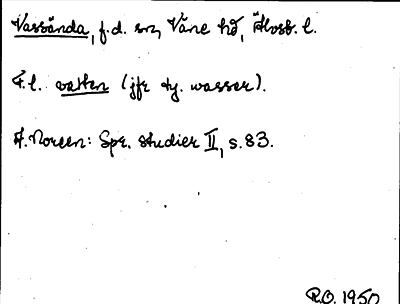 Vassända, f.d. sn, Väne hd, Älvsb. l.
F.l. vatten (jfr ty. wasser).
A. Noreen: Spr. studier II, s. 83.
R.O. 1950